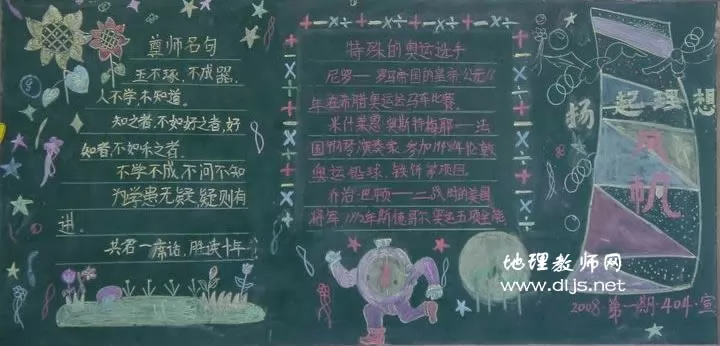 尊师名句
玉不琢,不成器,
人不学,不知道。
知之者,不如好之者,好
如者,不如乐之者。
不学不成,不问不知
为学患无疑,疑则有
进.
共君一席话,胜读十年
特殊的奥运选手
尼罗——罗马帝国的皇帝公元
年在希腊奥运会马车比赛.
米什莱恩·奥斯特梅耶——法
国钢琴演奏家,参加1948年伦敦
奥运铅球,铁饼等项目
乔治·巴顿——二战时的美国
将军1912年斯德哥尔摩五项全能
扬起理想
风帆
地理教师网
www.dljs.net
2008·第一期·404·宣